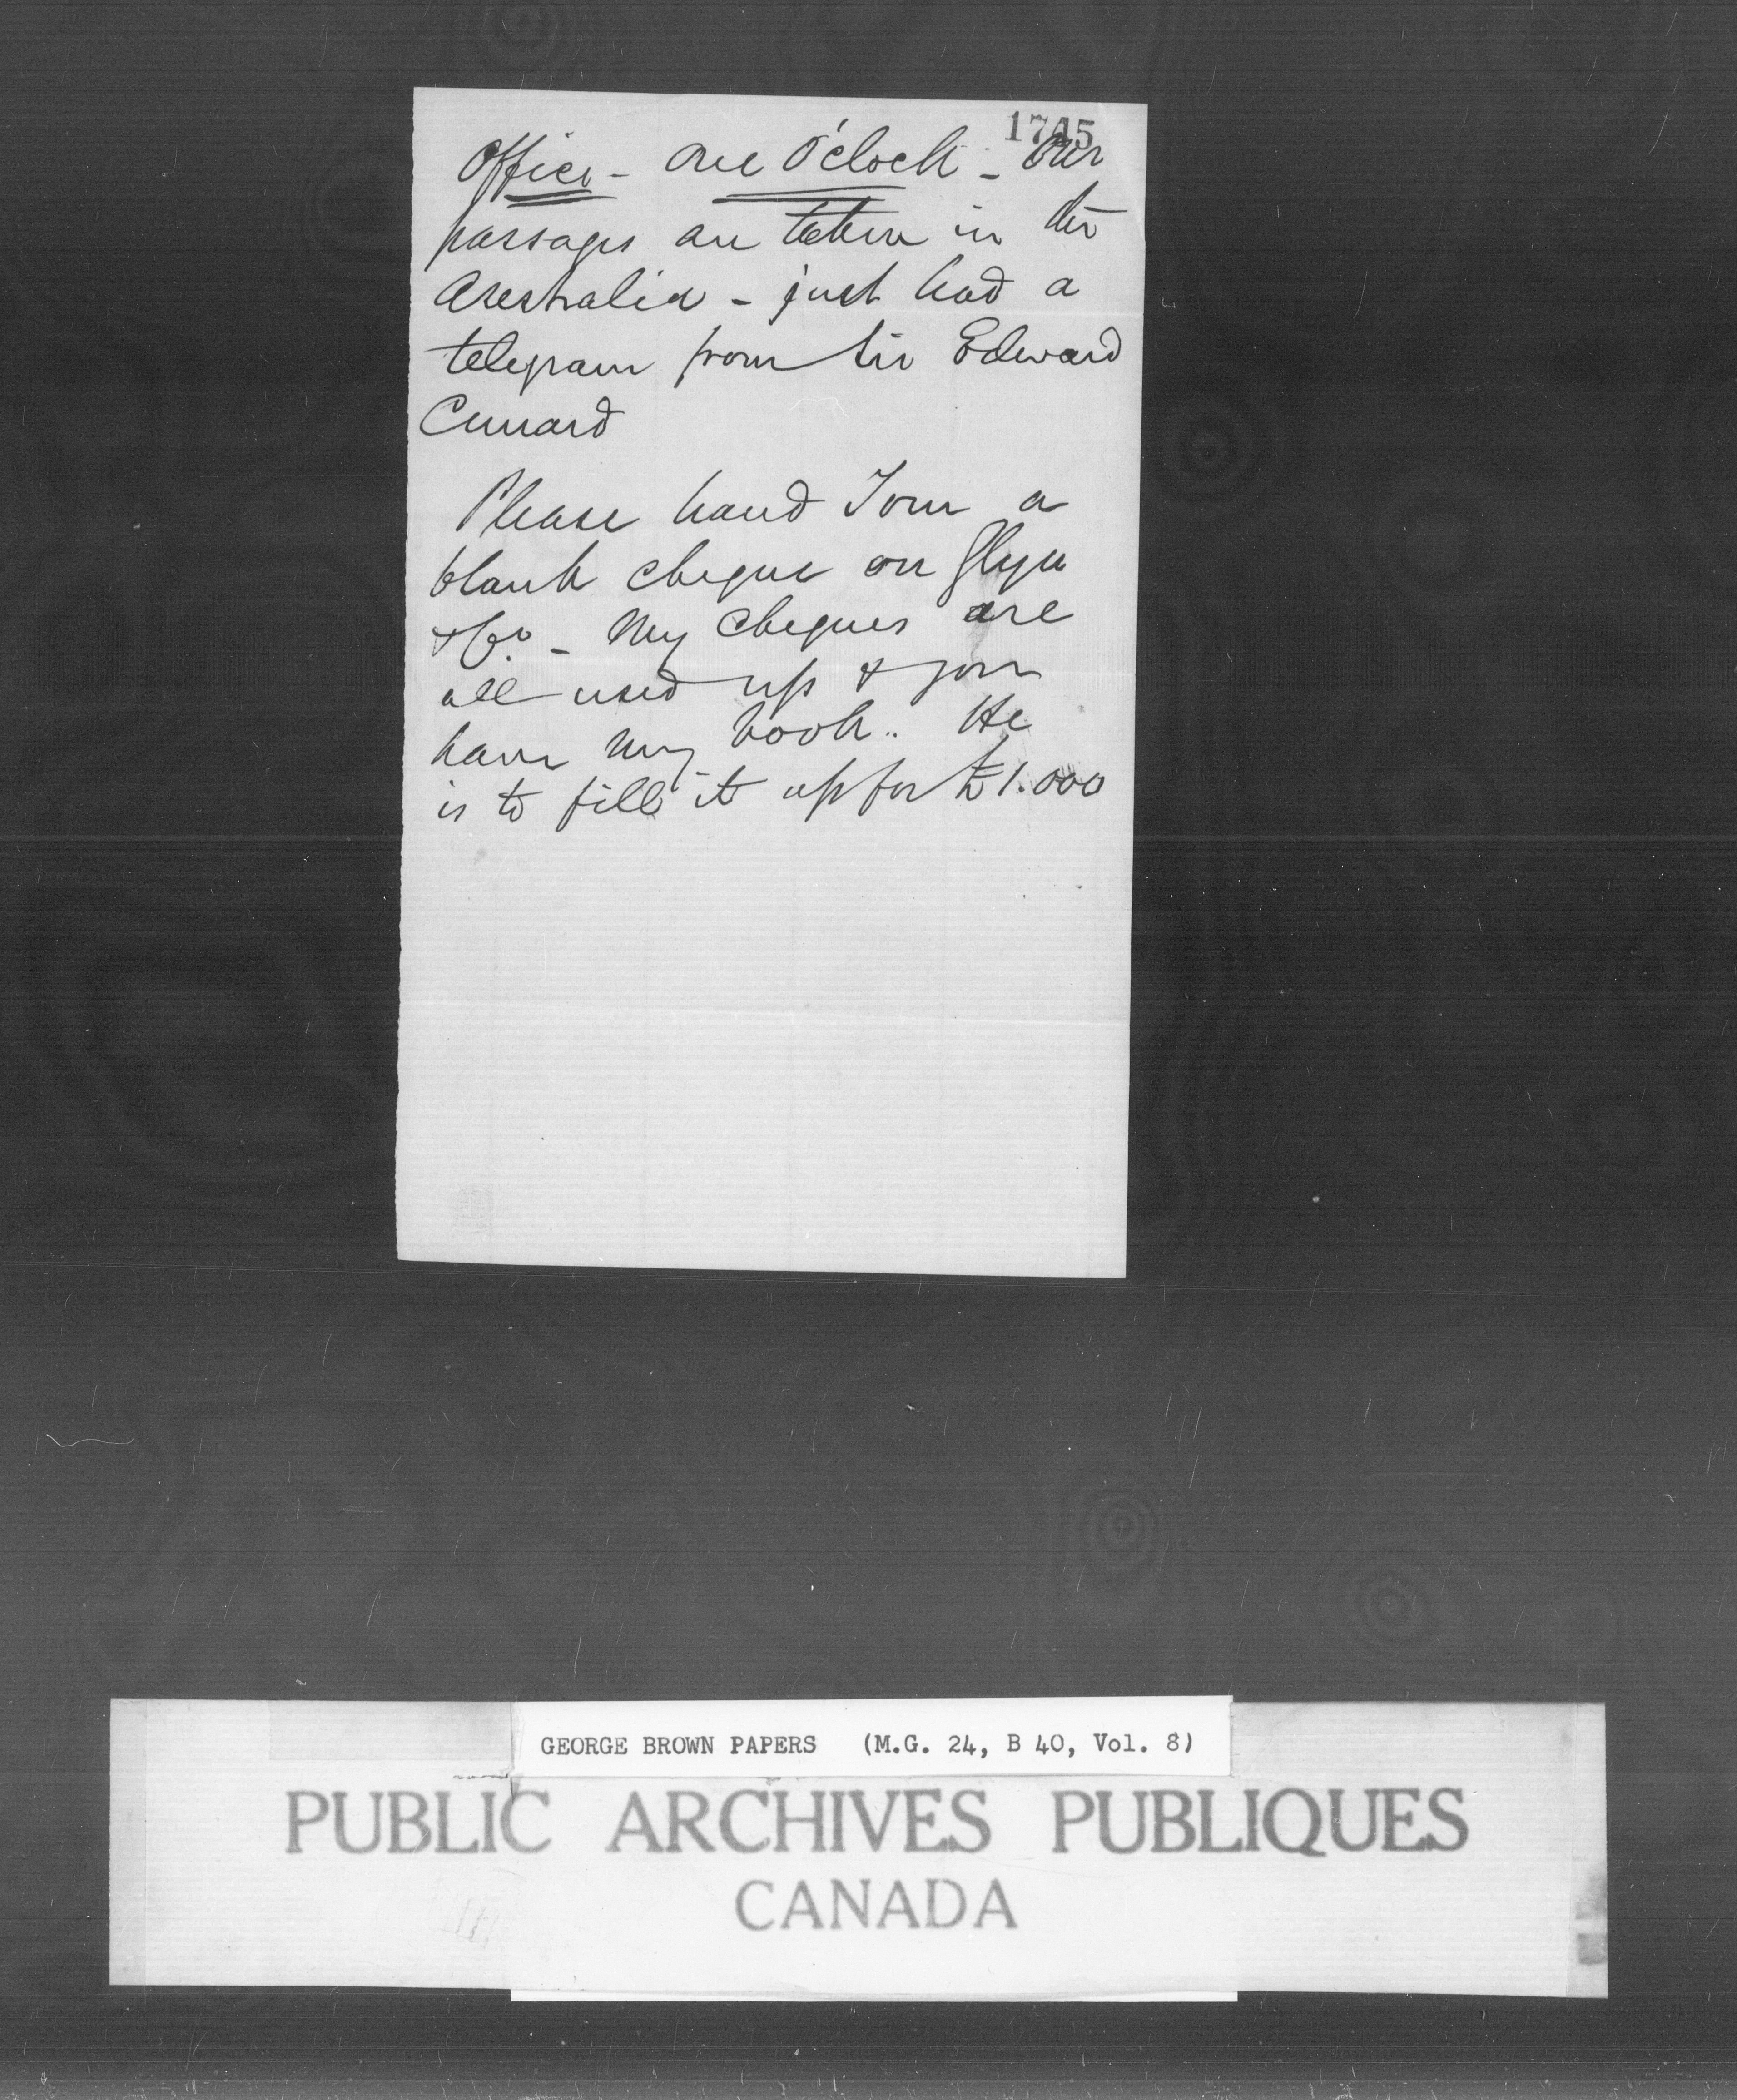 1745
Office - One O'clock - Our
passages are taken in the
Australia - just had a
telegram from Sir Edward
Cunard
Please hand Tom a
blank cheque on Glyn
& Co. - My cheques are
all used up & you
have my book. He
is to fill it up for £1.000
GEORGE BROWN PAPERS (M.G. 24, B 40, Vol. 8)
PUBLIC ARCHIVES PUBLIQUES
CANADA